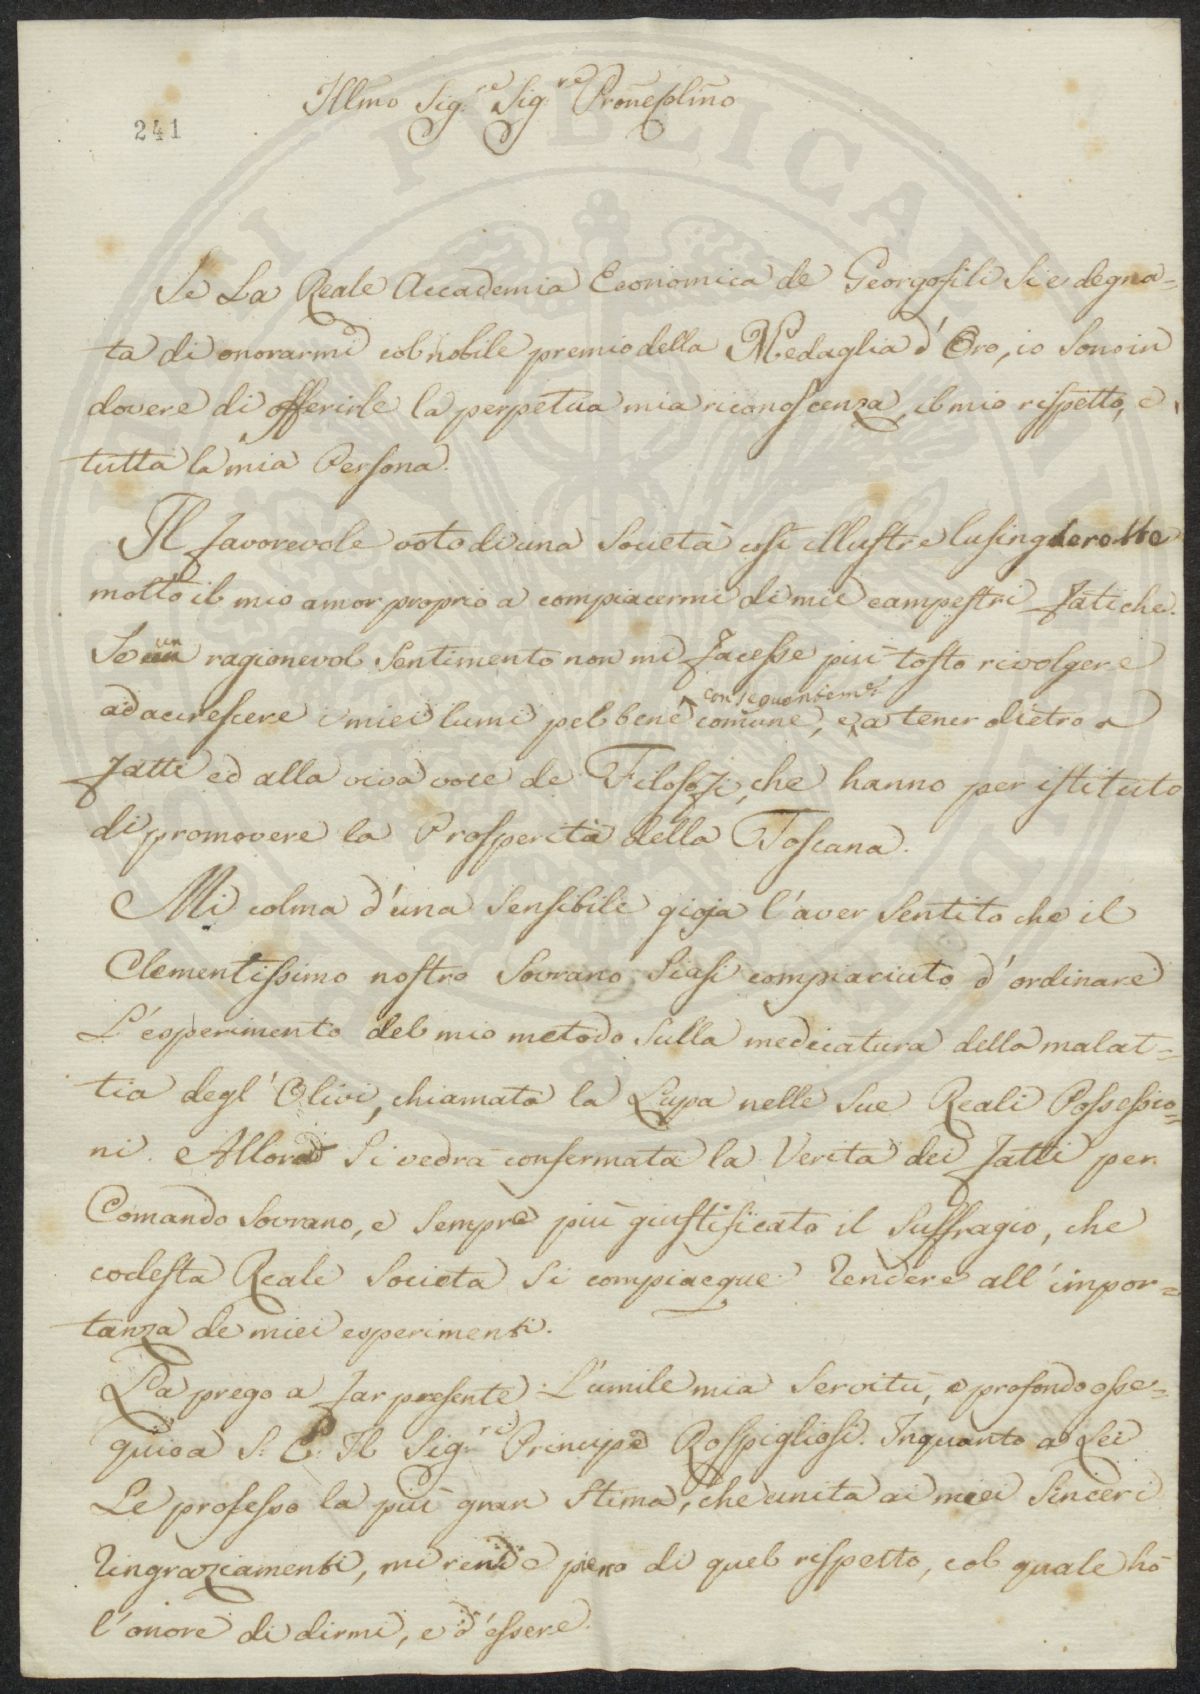 Illmo Sig.re Sig.re Pron̄e Colmo
241
Se La Reale Accademia Economica de Georgofili Si è degna=
ta di onorarmi col nobile premio della Medaglia d'Oro, io Sono in
dovere di offerirle la perpetua mia riconoscenza, il mio rispetto, e
tutta la mia Persona.
Il favorevole voto di una Società così illustre lusingherebbe
molto il mio amor proprio a compiacermi di miei campestri fatiche.
Se un ragionevol Sentimento non mi facesse più tosto rivolgere
ad accrescere i miei lumi pel bene comune, e conseguentem.e a tener dietro a
fatti ed alla viva voce de Filosofi, che hanno per istituto
di promovere la Prosperità della Toscana.
Mi colma d'una Sensibile gioja l'aver Sentito che il
Clementissimo nostro Sovrano Siasi compiaciuto d'ordinare
L'esperimento del mio metodo Sulla medicatura della malat=
tia degl'Olivi, chiamata la Lupa nelle Sue Reali Possessio=
ni. Allora Si vedrà confermata la Verità dei fatti per
Comando Sovrano, e Sempre più giustificato il Suffragio, che
codesta Reale Società Si compiacque rendere all'impor=
tanza de miei esperimenti.
La prego a far presente L'umile mia Servitù, e profondo osse=
quio a S. E. Il Sig.re Principe Rospigliosi. Inquanto a Lei
Le professo la più gran Stima, che unita ai miei Sinceri
ringraziamenti, mi rende pieno di quel rispetto, col quale hò
l'onore di dirmi, e d'essere.
PUBLICAE